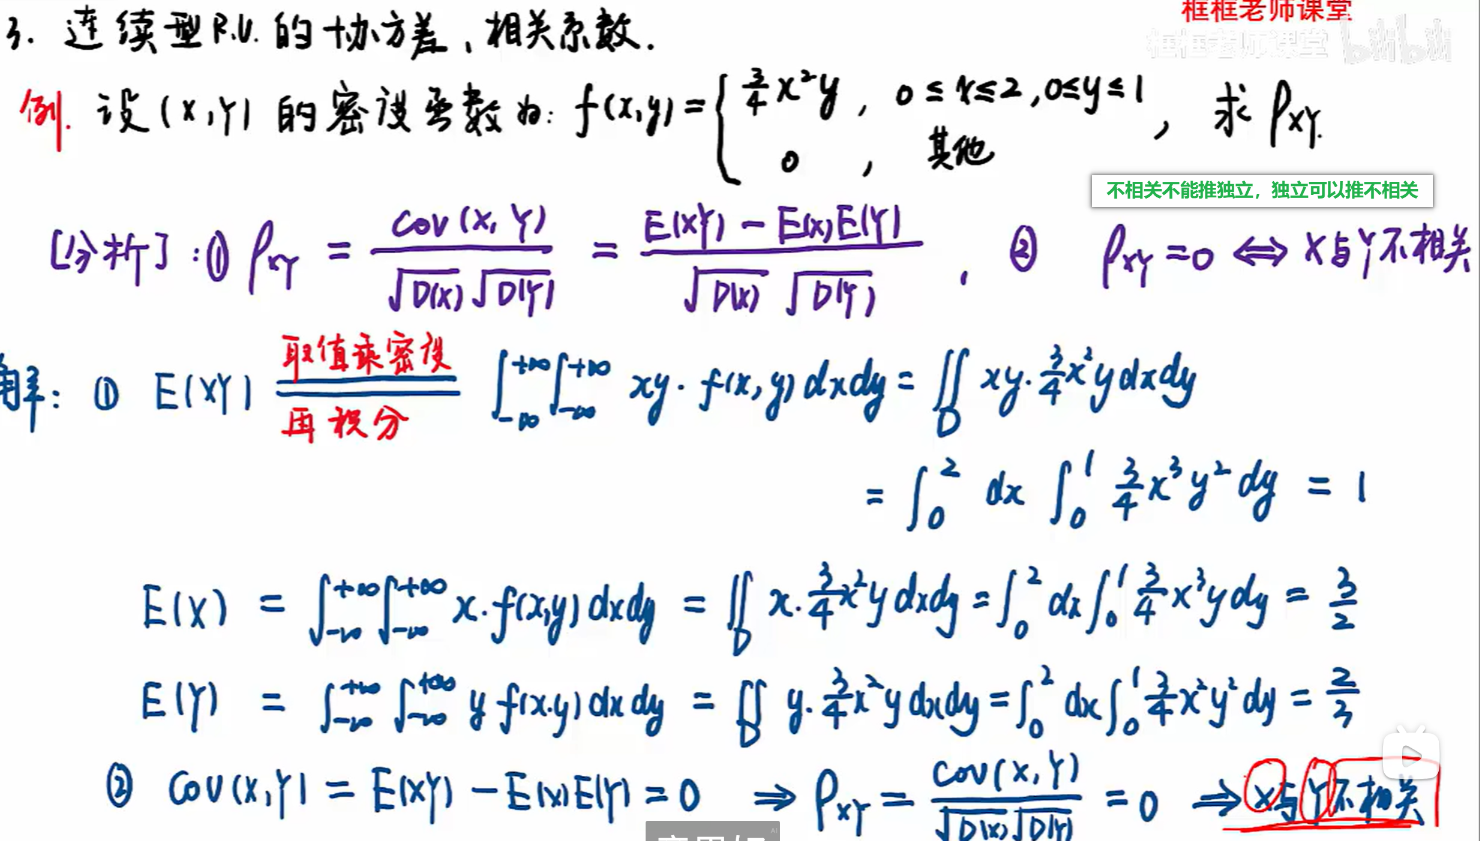 框框老师课堂
框框老师课堂 bilibili
3. 连续型R.V.的协方差、相关系数.
例. 设(X,Y)的密度函数为: f(x,y) = { 3/4 x²y , 0≤x≤2, 0≤y≤1 , 求 ρXY.
0 , 其他
不相关不能推独立，独立可以推不相关
[分析]: ① ρXY = Cov(X,Y) / √D(X) √D(Y) = E(XY) - E(X)E(Y) / √D(X) √D(Y) . ② ρXY = 0 ⇔ X与Y不相关
解: ① E(XY) 取值乘密度 再积分 ∫_{-∞}^{+∞} ∫_{-∞}^{+∞} xy · f(x,y) dxdy = ∬_D xy · 3/4 x²y dxdy
= ∫_0^2 dx ∫_0^1 3/4 x³y² dy = 1
E(X) = ∫_{-∞}^{+∞} ∫_{-∞}^{+∞} x · f(x,y) dxdy = ∬_D x · 3/4 x²y dxdy = ∫_0^2 dx ∫_0^1 3/4 x³y dy = 3/2
E(Y) = ∫_{-∞}^{+∞} ∫_{-∞}^{+∞} y f(x,y) dxdy = ∬_D y · 3/4 x²y dxdy = ∫_0^2 dx ∫_0^1 3/4 x²y² dy = 2/3
② Cov(X,Y) = E(XY) - E(X)E(Y) = 0 ⇒ ρXY = Cov(X,Y) / √D(X) √D(Y) = 0 ⇒ X与Y不相关